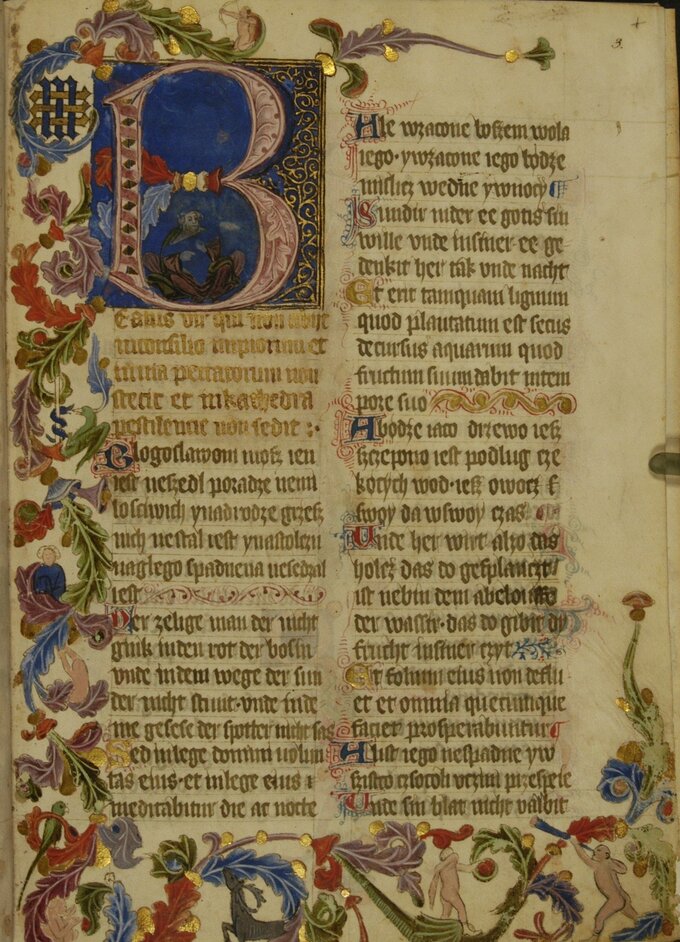 B
eatus vir qui non abijt
in consilio impiorum et
in via peccatorum non
stetit et in kathedra
pestilencie non sedit :
Blogoslawoni møsz ien
iest neszedl poradze nem
losciwich ynadrodze grzesz
nich nestal iest ynastolczu
naglego spadnena nesedzal
iest
Der zelige man der nicht
gink in den rot der bosin
vnde in dem wege der sun
der nicht stunt vnde inde
me gesese der spotter nicht sas
Sed in lege domini volun
tas eius et in lege eius
meditabitur die ac nocte
3.
Ale wzacone bossem wola
iego ywzacone iego bødze
mislicz wedne ywnocy
Sundir inder ee gotis sin
wille vnde in siner ee ge
denkit her tak vnde nacht
Et erit tamquam lignum
quod plantatum est secus
decursus aquarum quod
fructum suum dabit in tem
pore suo
A bødze iaco drzewo iesz
szczepono iest podlug cze
køcych wod iesz owocz
swoy da wswoy czas
Unde her wirt alzo das
holcz das do gesplanczit
ist nebin dem abeloufe
der wassir das do gibit dy
frucht in siner czyt
Et folium eius non deflu
et et omnia quecunque
faciet prosperabuntur
A list iego nespadne yw
szistco czsocoli uczini przespeie
Unde sin blat nicht valbit